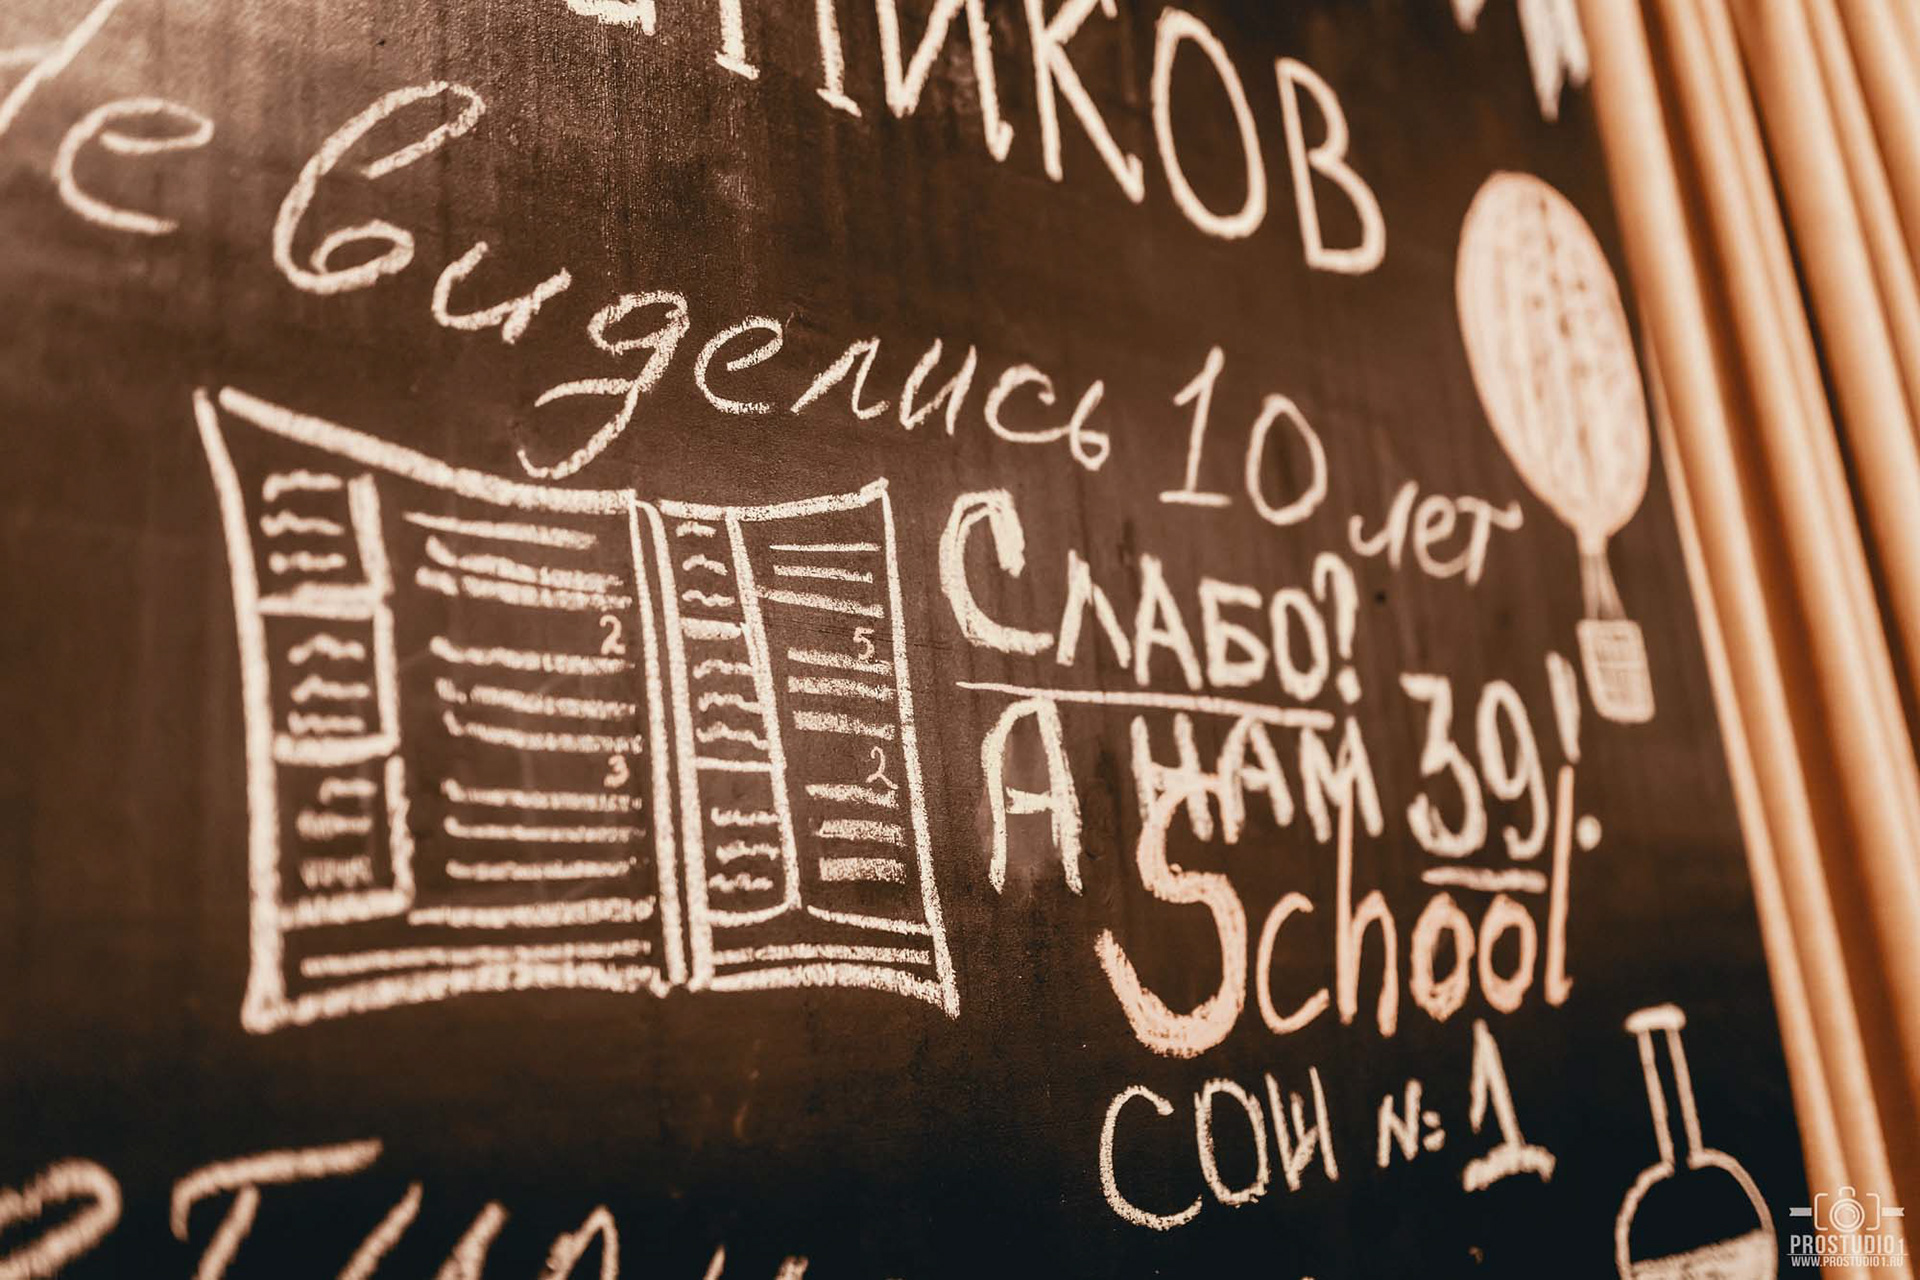 не виделись 10 лет
2
5
3
2
Слабо?
А нам 39!
School
СОШ №1
PROSTUDIO1
WWW.PROSTUDIO1.RU